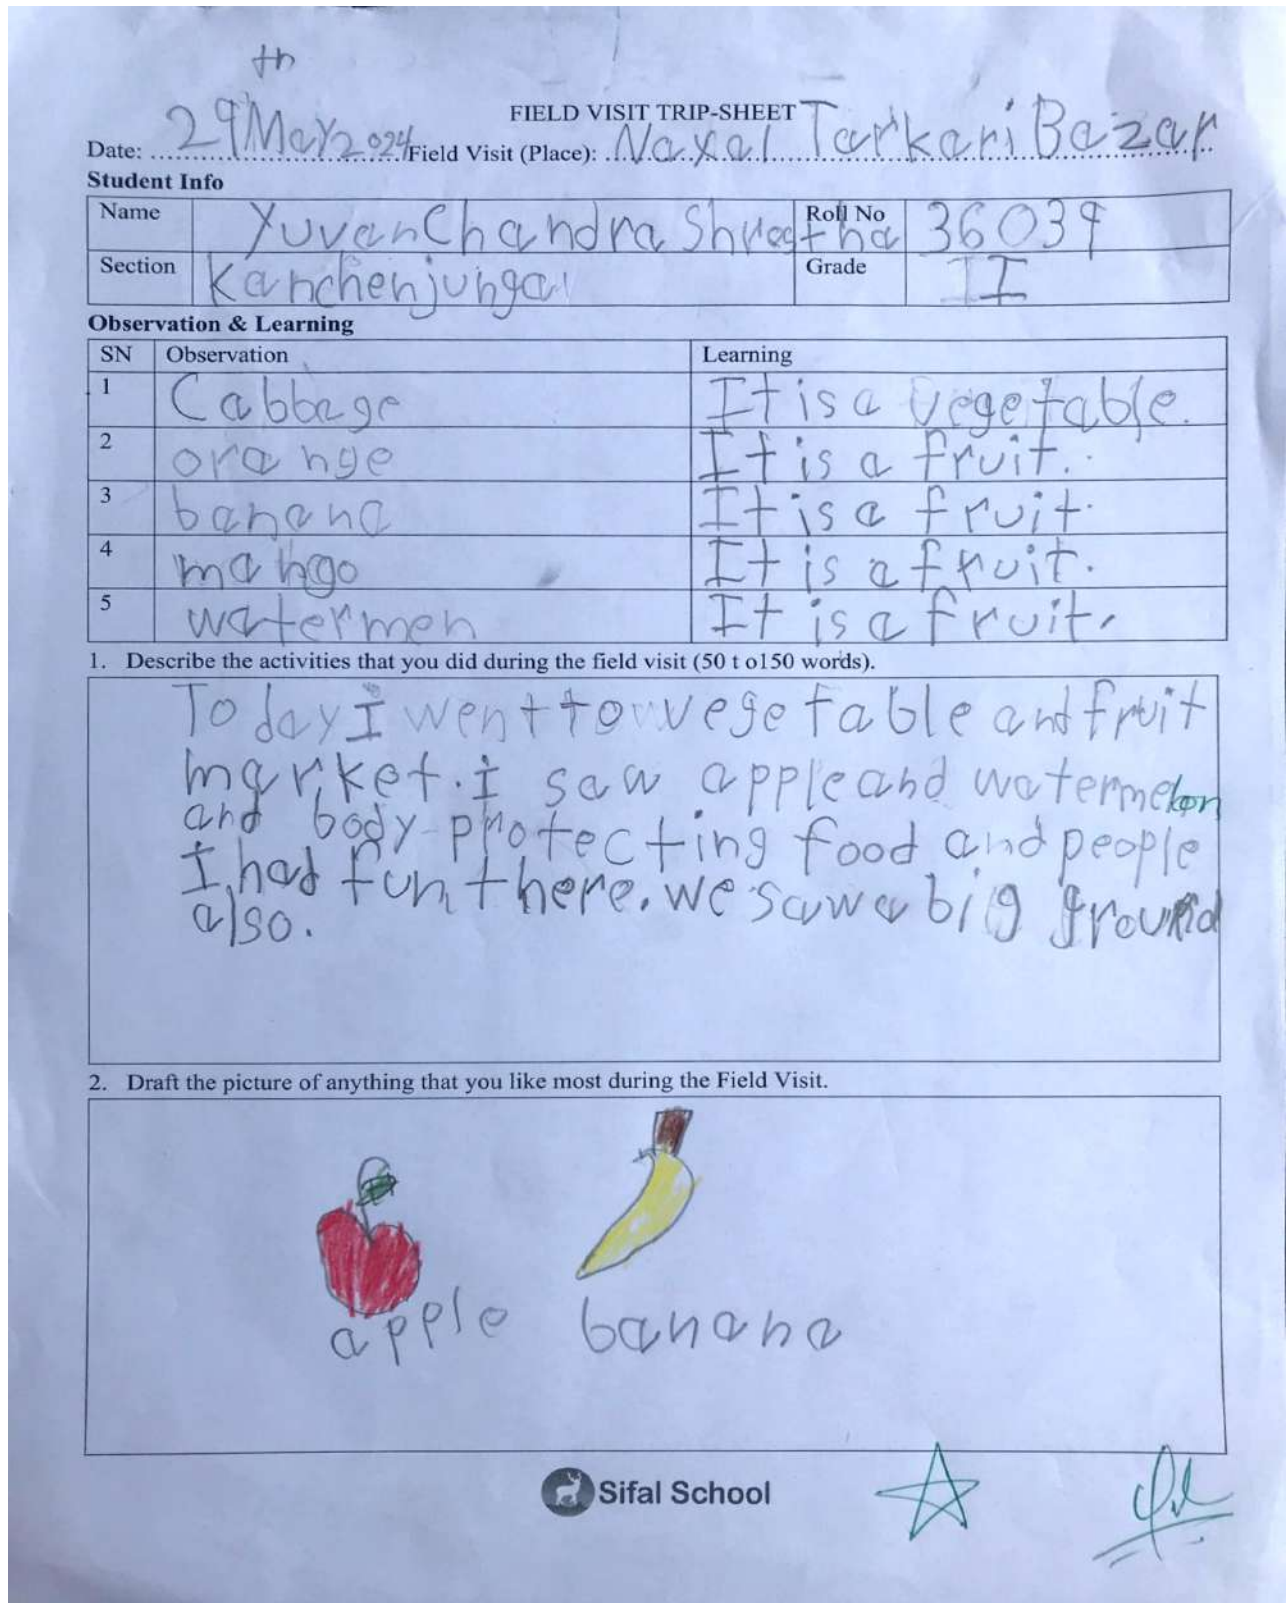 th
FIELD VISIT TRIP-SHEET
Date: 29 May 2024 Field Visit (Place): Naxal Tarkari Bazar
Student Info
Name Yuvan Chandra Shrestha Roll No 36039
Section Kanchenjunga Grade II
Observation & Learning
SN Observation Learning
1 Cabbage It is a vegetable.
2 orange It is a fruit.
3 banana It is a fruit.
4 mango It is a fruit.
5 watermen It is a fruit.
1. Describe the activities that you did during the field visit (50 t o150 words).
Today I went to vegetable and fruit
market. I saw apple and watermelon
and body protecting food and people
I had fun there. we saw a big ground
also.
2. Draft the picture of anything that you like most during the Field Visit.
apple banana
Sifal School